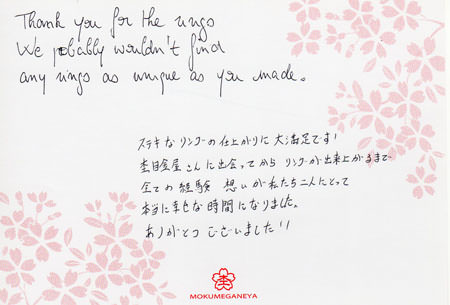 Thank you for the rings
We probably wouldn't find
any rings as unique as you made.
ステキなリングの仕上がりに大満足です!
杢目金屋さんに出会ってからリングが出来上がるまで
全ての経験 想いが私たち二人にとって
本当に幸せな時間になりました。
ありがとうございました!!
MOKUMEGANEYA